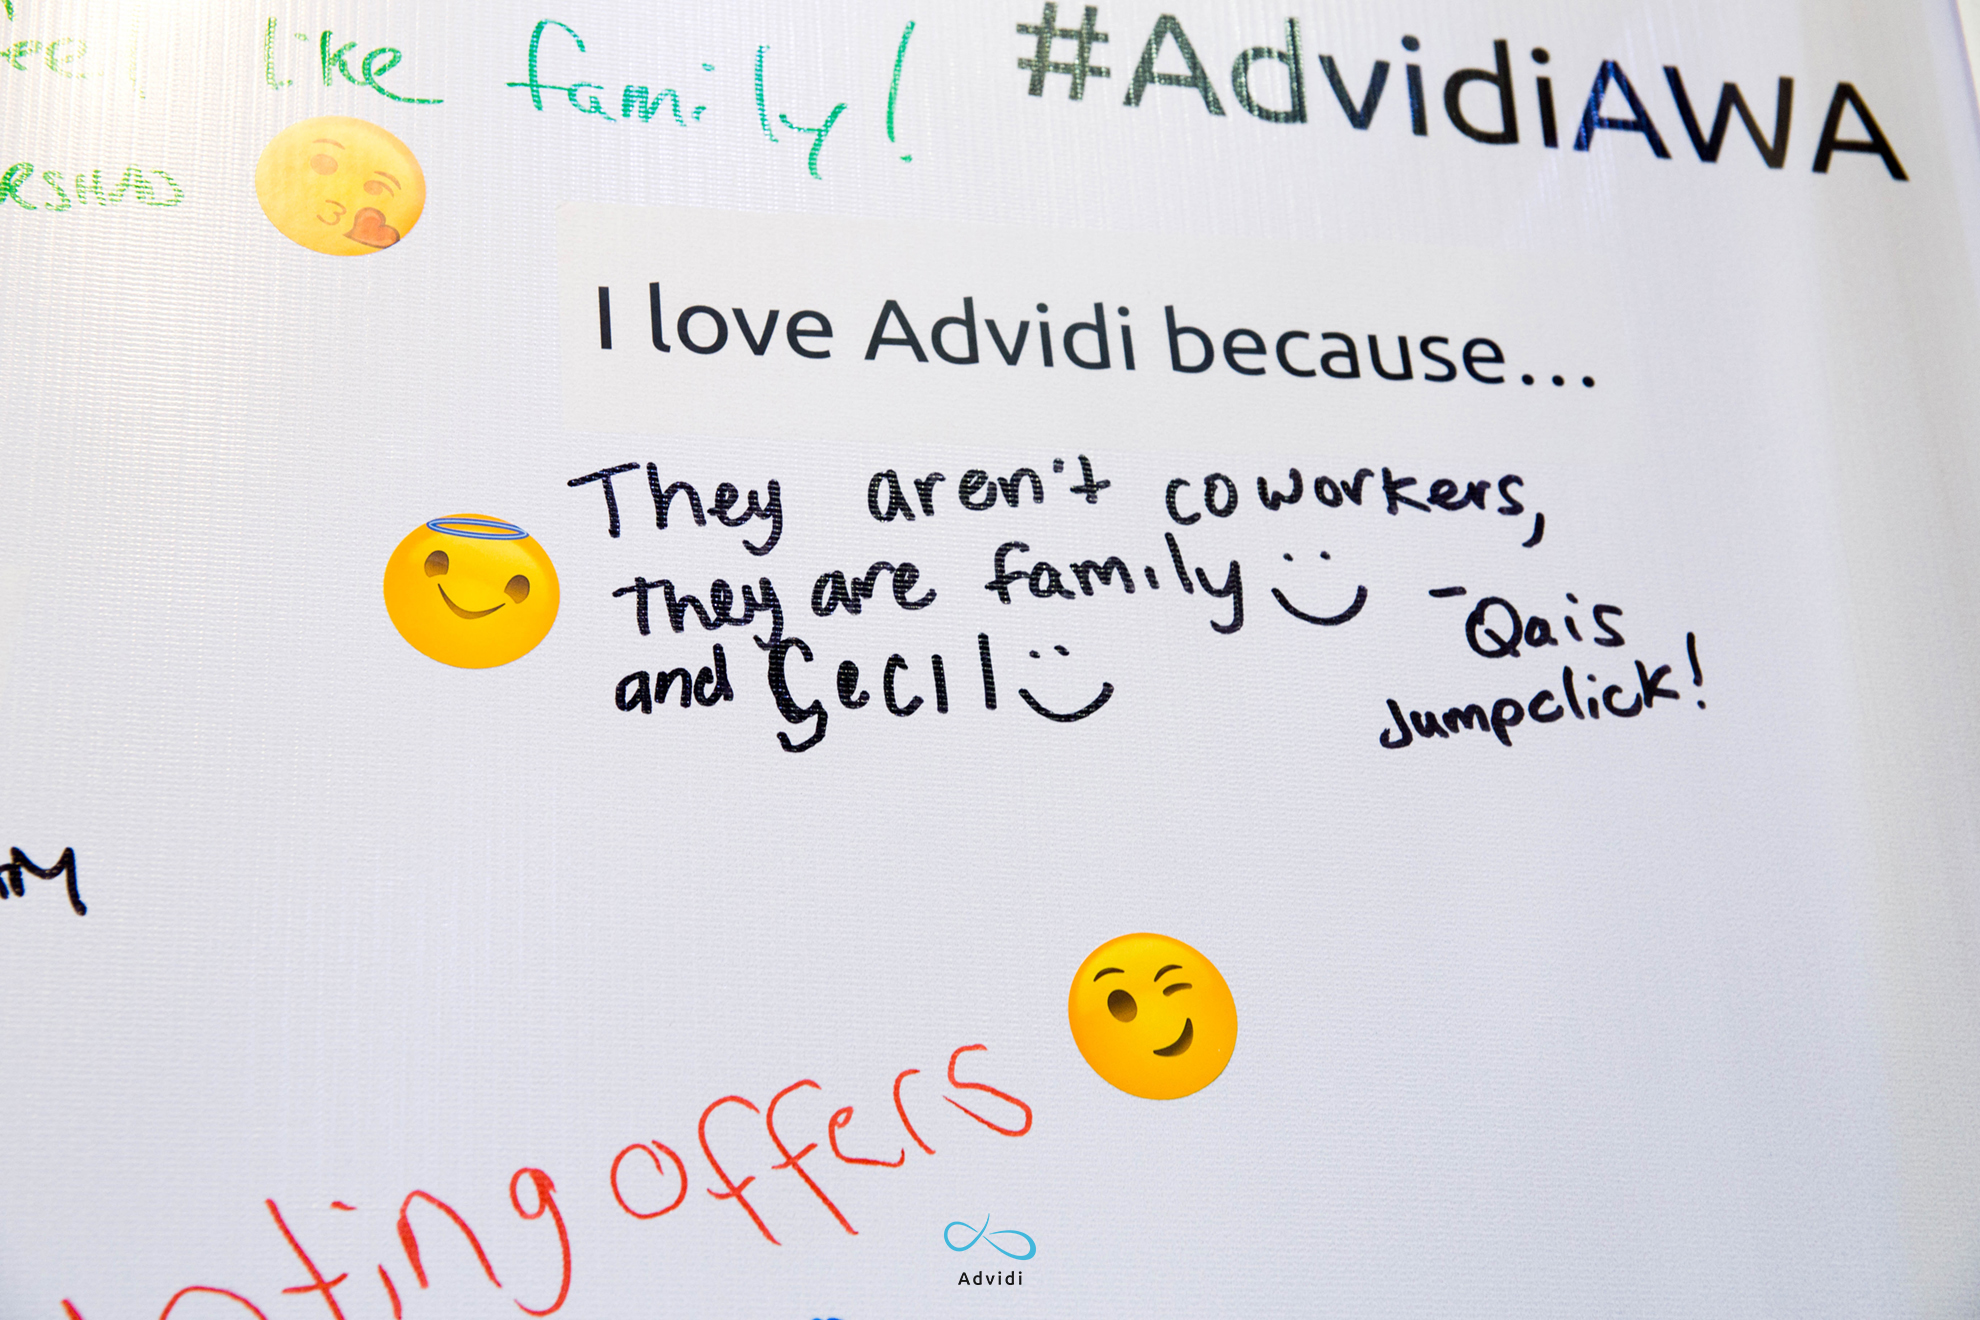 like family!
#AdvidiAWA
I love Advidi because...
They aren't coworkers,
they are family
and Cecil
-Qais
Jumpclick!
offers
Advidi